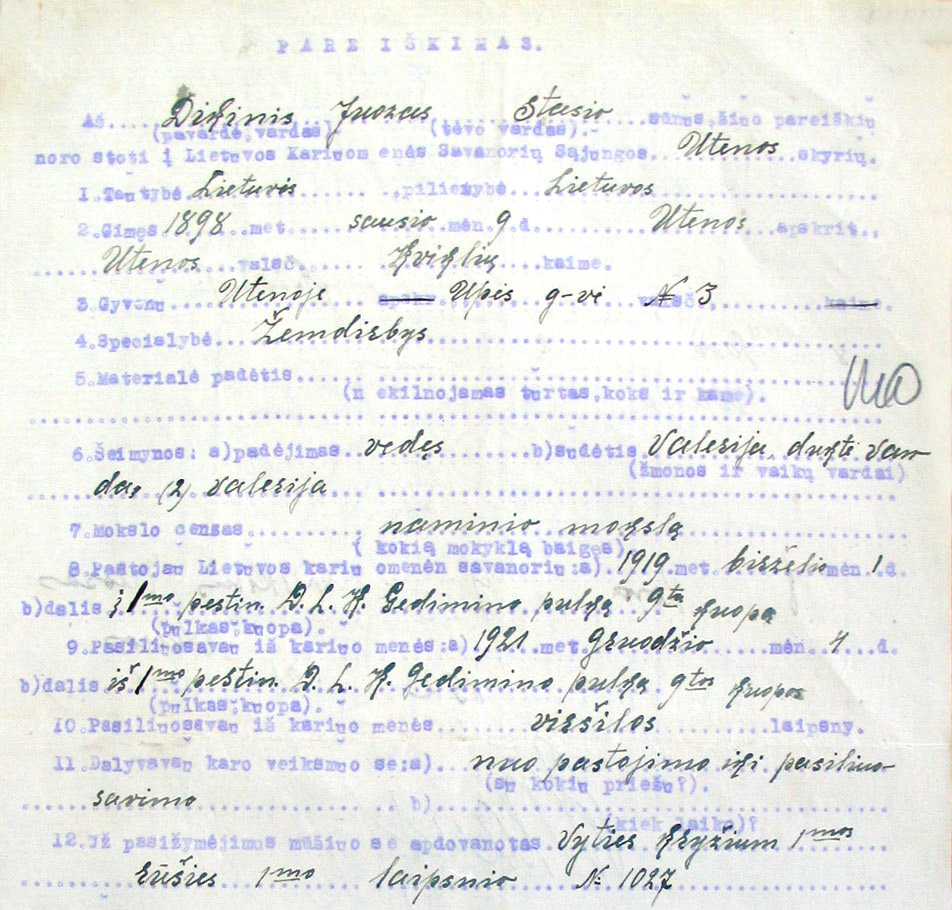 PAREIŠKIMAS.
Aš.... Dikinis Juozas Stasio sūnus, šiuo pareiškiu
(pavardė, vardas) (tėvo vardas).
noro stoti į Lietuvos Kariuomenės Savanorių Sąjungos... Utenos skyrių.
1. Tautybė Lietuvis pilietybė Lietuvos
2. Gimęs 1898 met sausio mėn 9 d. Utenos apskrit.
Utenos valsč. Kviklių kaime.
3. Gyvenu Utenoje apskr Upės g-vė valsč, № 3 kaime.
4. Specialybė.. Žemdirbys
5. Materialė padėtis
(nekilnojamas turtas, koks ir kame).
6. Šeimynos: a) padėjimas vedęs b) sudėtis Valerija, duktė Van-
(žmonos ir vaikų vardai)
da, (2) Valerija
7. Mokslo censas naminio mokslą
( kokią mokyklą baigęs)
8. Pastojau Lietuvos kariuomenėn savanoriu: a). 1919. met birželio mėn 1. d.
b) dalis į 1mo pestin. D. L. K. Gedimino pulką 9ta kuopa
(pulkas, kuopa).
9. Pasiliuosavau iš kariuomenės: a) 1921. met gruodžio mėn 4 d.
b) dalis iš 1mo pestin. D. L. K. Gedimino pulką 9tos kuopos
(pulkas, kuopa).
10. Pasiliuosavau iš kariuomenės viršilos laipsny.
11. Dalyvavau karo veiksmuose: a) nuo pastojimo iki pasiliuo-
(su kokiu priešu?).
savimo b)
(kiek laiko)?
12. Už pasižymėjimus mūšiuose apdovanotas Vyties kryžium 1mos
rūšies 1mo laipsnio № 1027